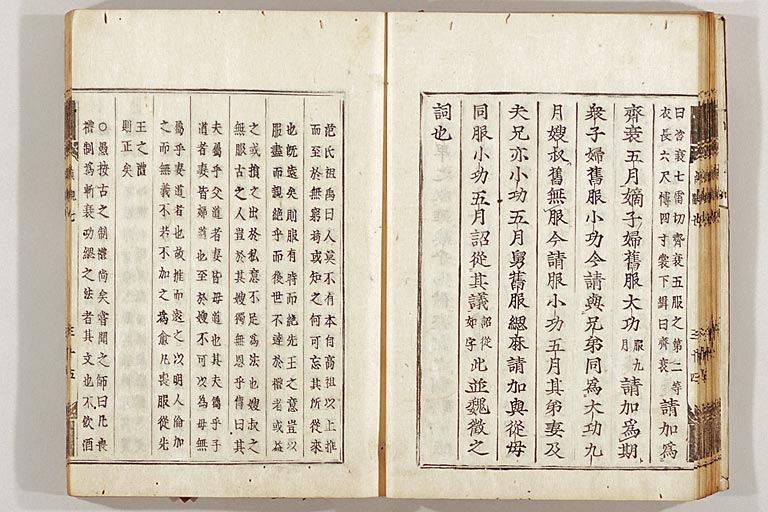 曰咨衰七雷切齊衰五服之第二等
衣長六尺博四寸裳下緝曰齊衰
請加爲
齊衰五月嫡子婦舊服大功服九月請加爲期
衆子婦舊服小功今請與兄弟同爲大功九
月嫂叔舊無服今請服小功五月其弟妻及
夫兄亦小功五月舅舊服緦麻請加與從母
同服小功五月詔從其議詔從如字此並魏徵之
詞也
三十四
范氏祖禹曰人莫不有本自高祖以上推
而至於無窮苟或知之何可忘其所從來
也旣遠矣則服有時而絶先王之意豈以
服盡而親絶乎而後世不達於禮者或益
之或損之出於私意不足爲法也嫂叔之
無服古之人豈於其嫂獨無恩乎傳曰其
夫屬乎父道者妻皆母道也其夫屬乎子
道者妻皆婦道也至於嫂不可以爲母無
屬乎妻道者也故推而遠之以明人倫加
之而無義不若不加之爲愈凡喪服從先
王之禮
則正矣
○愚按古之制禮尚矣嘗聞之師曰凡喪
禮制爲斬衰功緦之法者其文也不飲酒
三十五